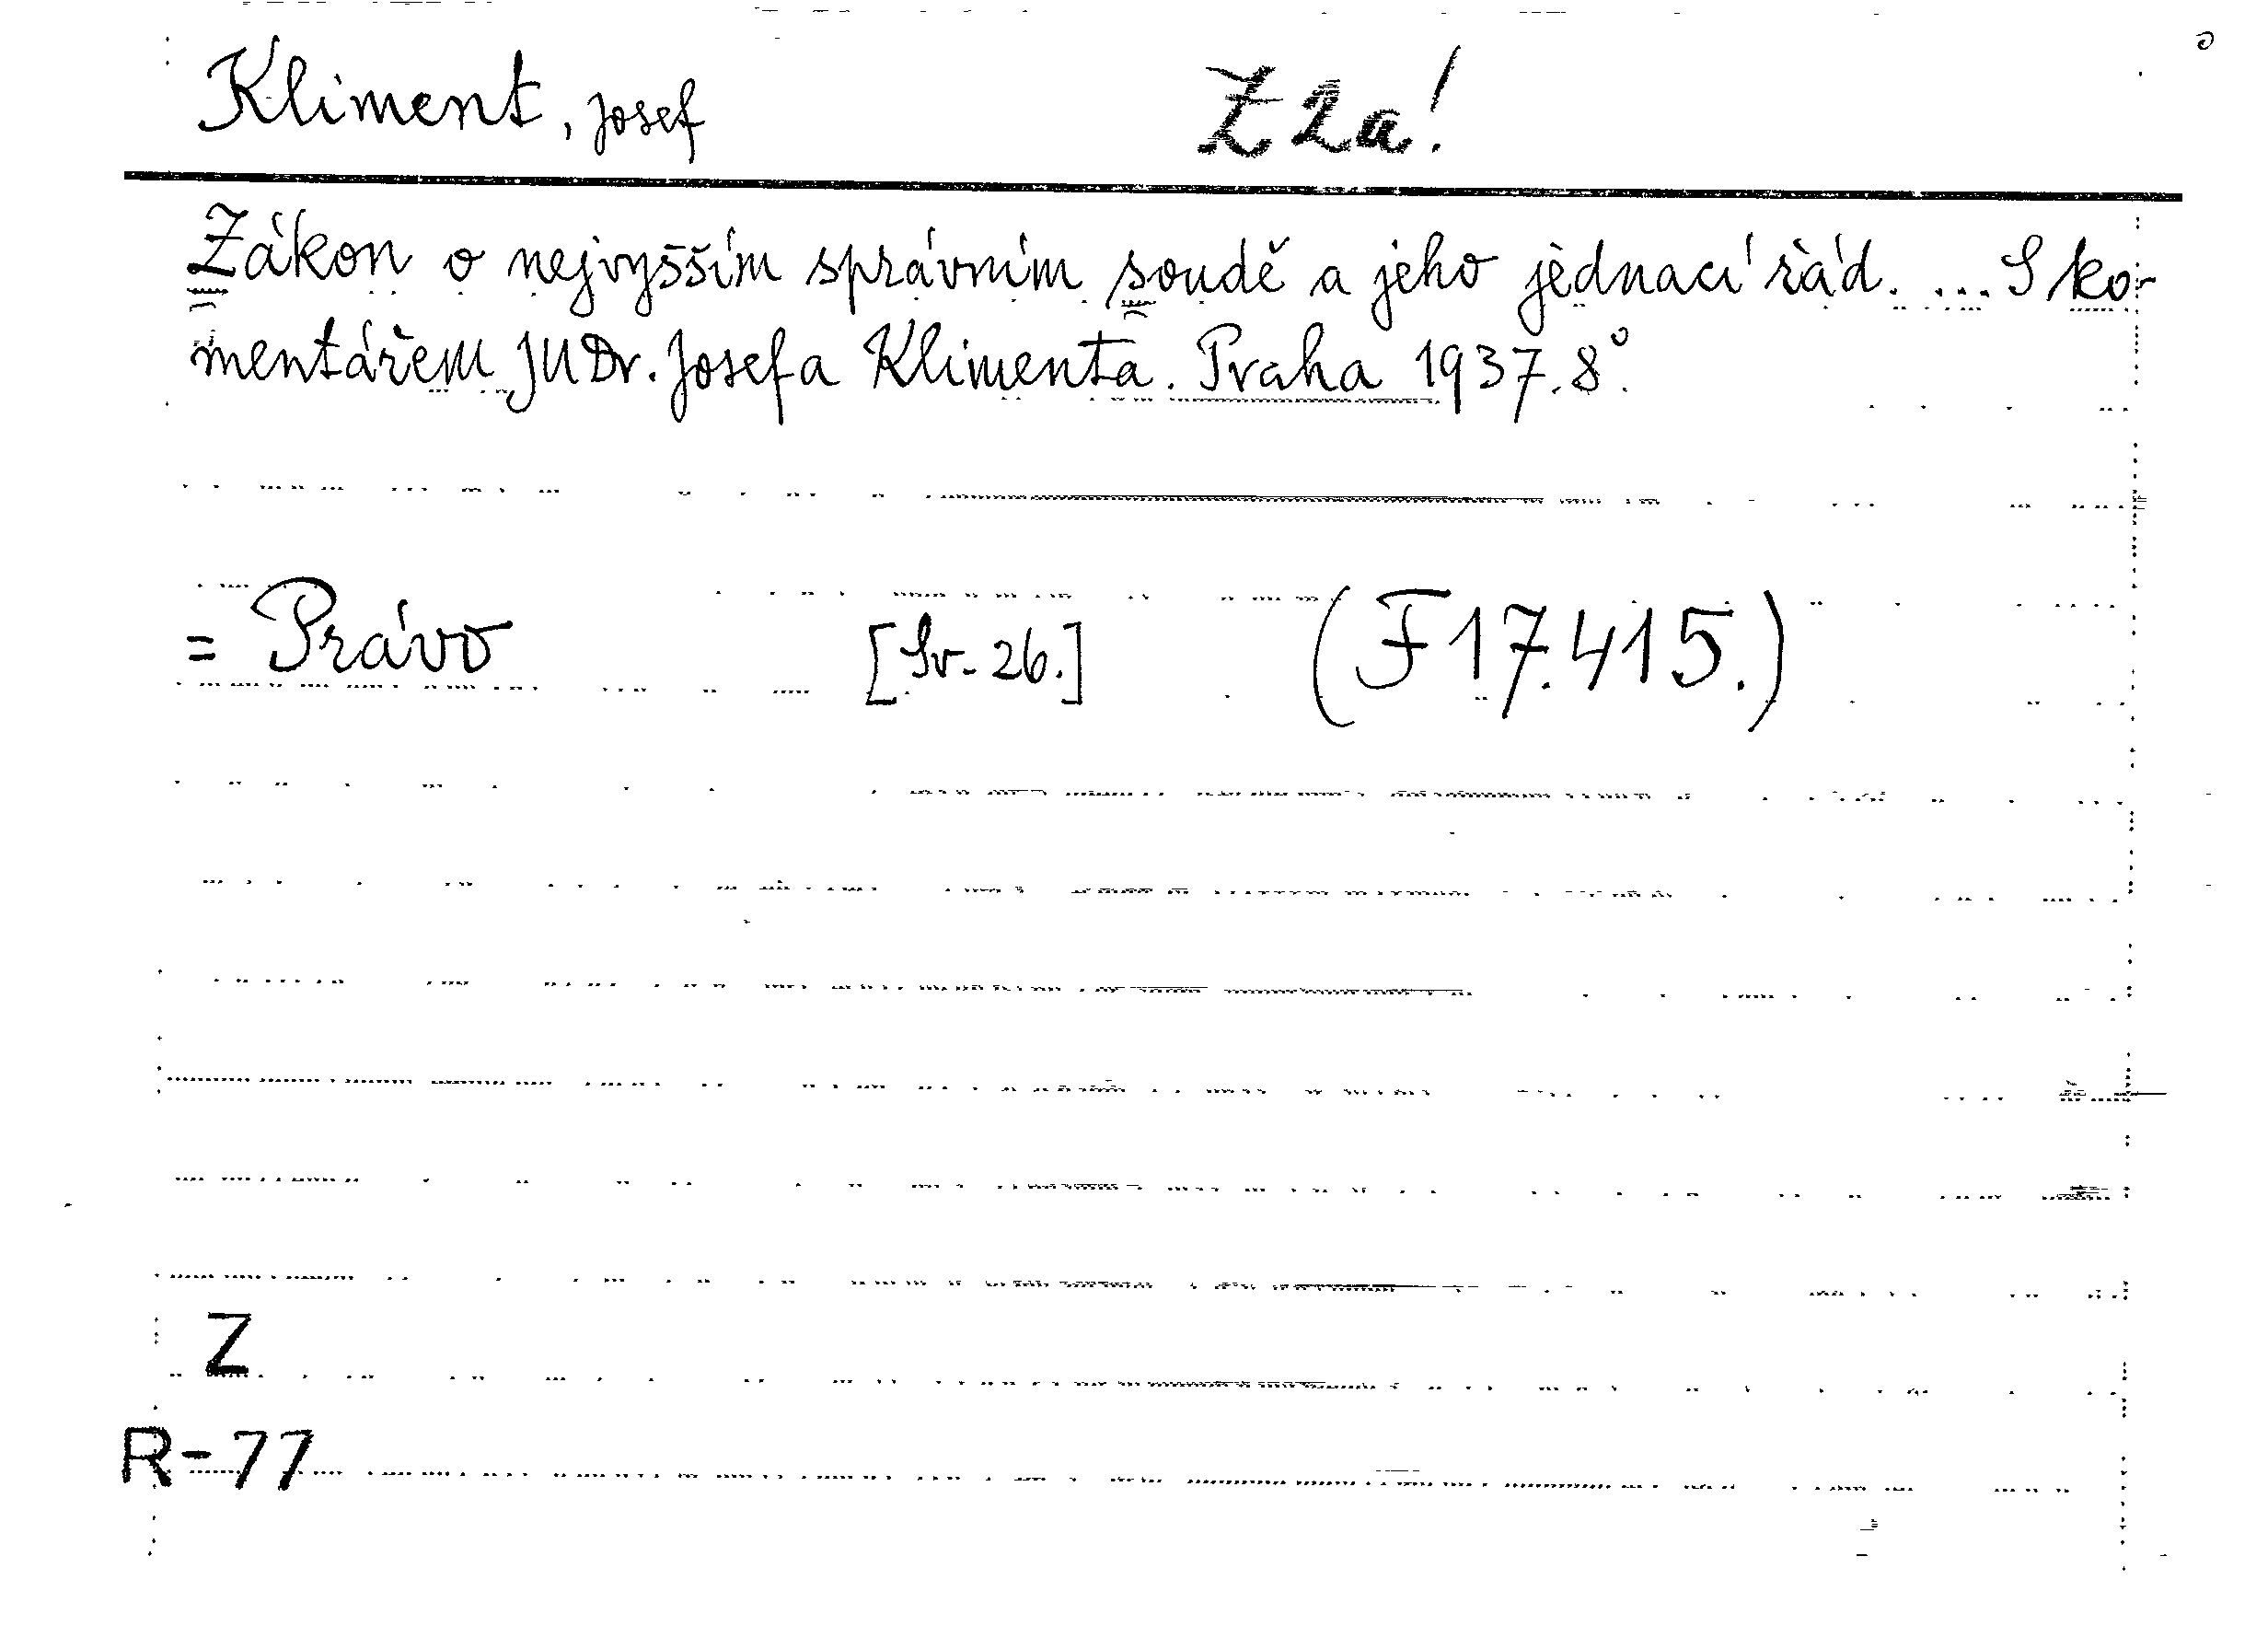 Kliment, Josef Z 2a!
Zákon o nejvyšším správním soudě a jeho jednací řád. ... S ko-
mentářem JUDr. Josefa Klimenta. Praha 1937. 8°.
= Právo [Sv. 26.] (F 17.415.)
Z
R-77